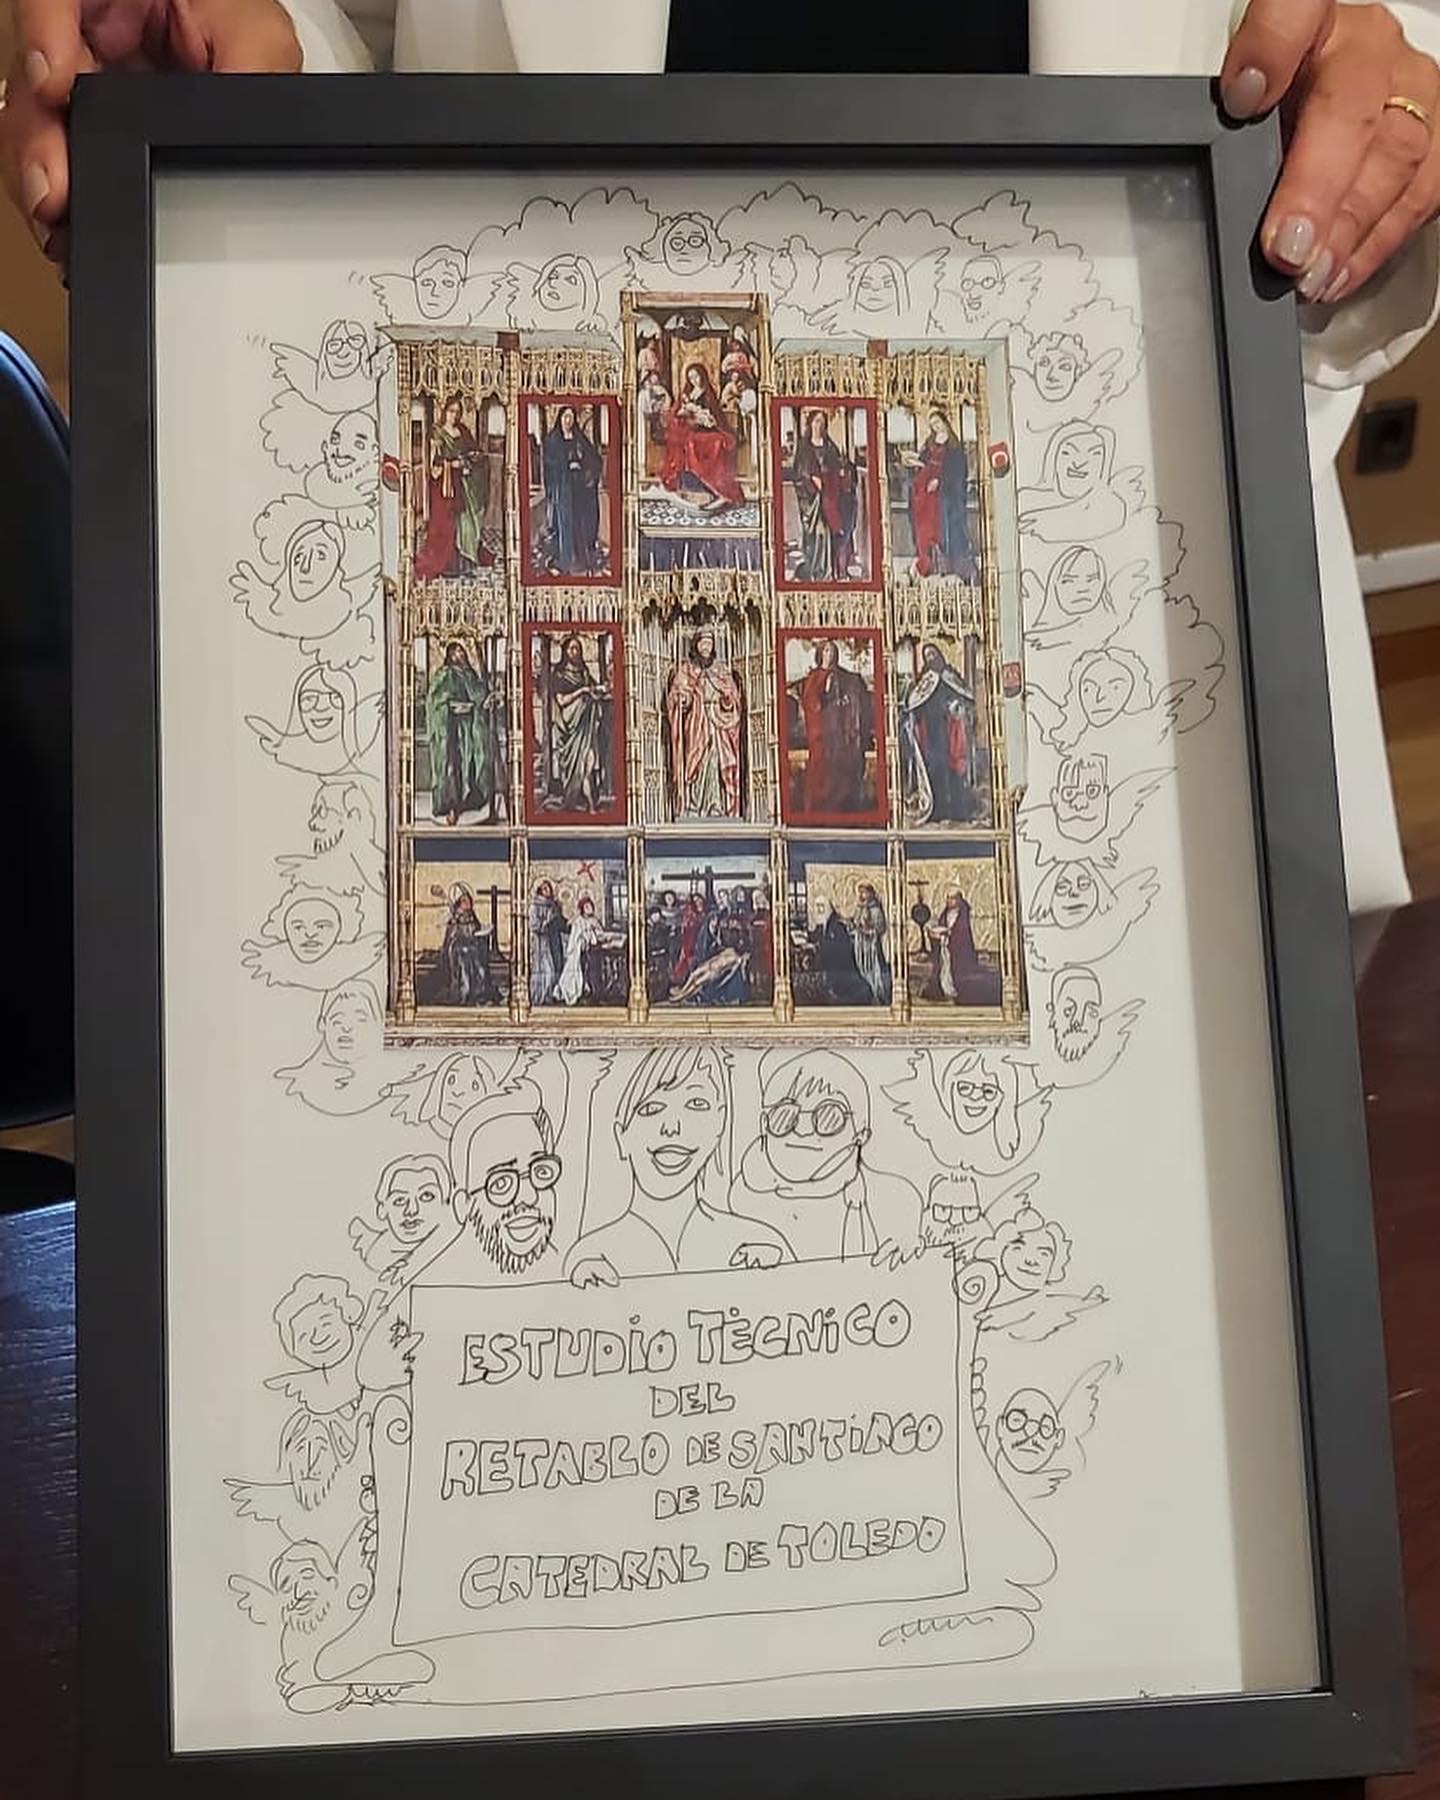 ESTUDIO TÉCNICO
DEL
RETABLO DE SANTIAGO
DE LA
CATEDRAL DE TOLEDO